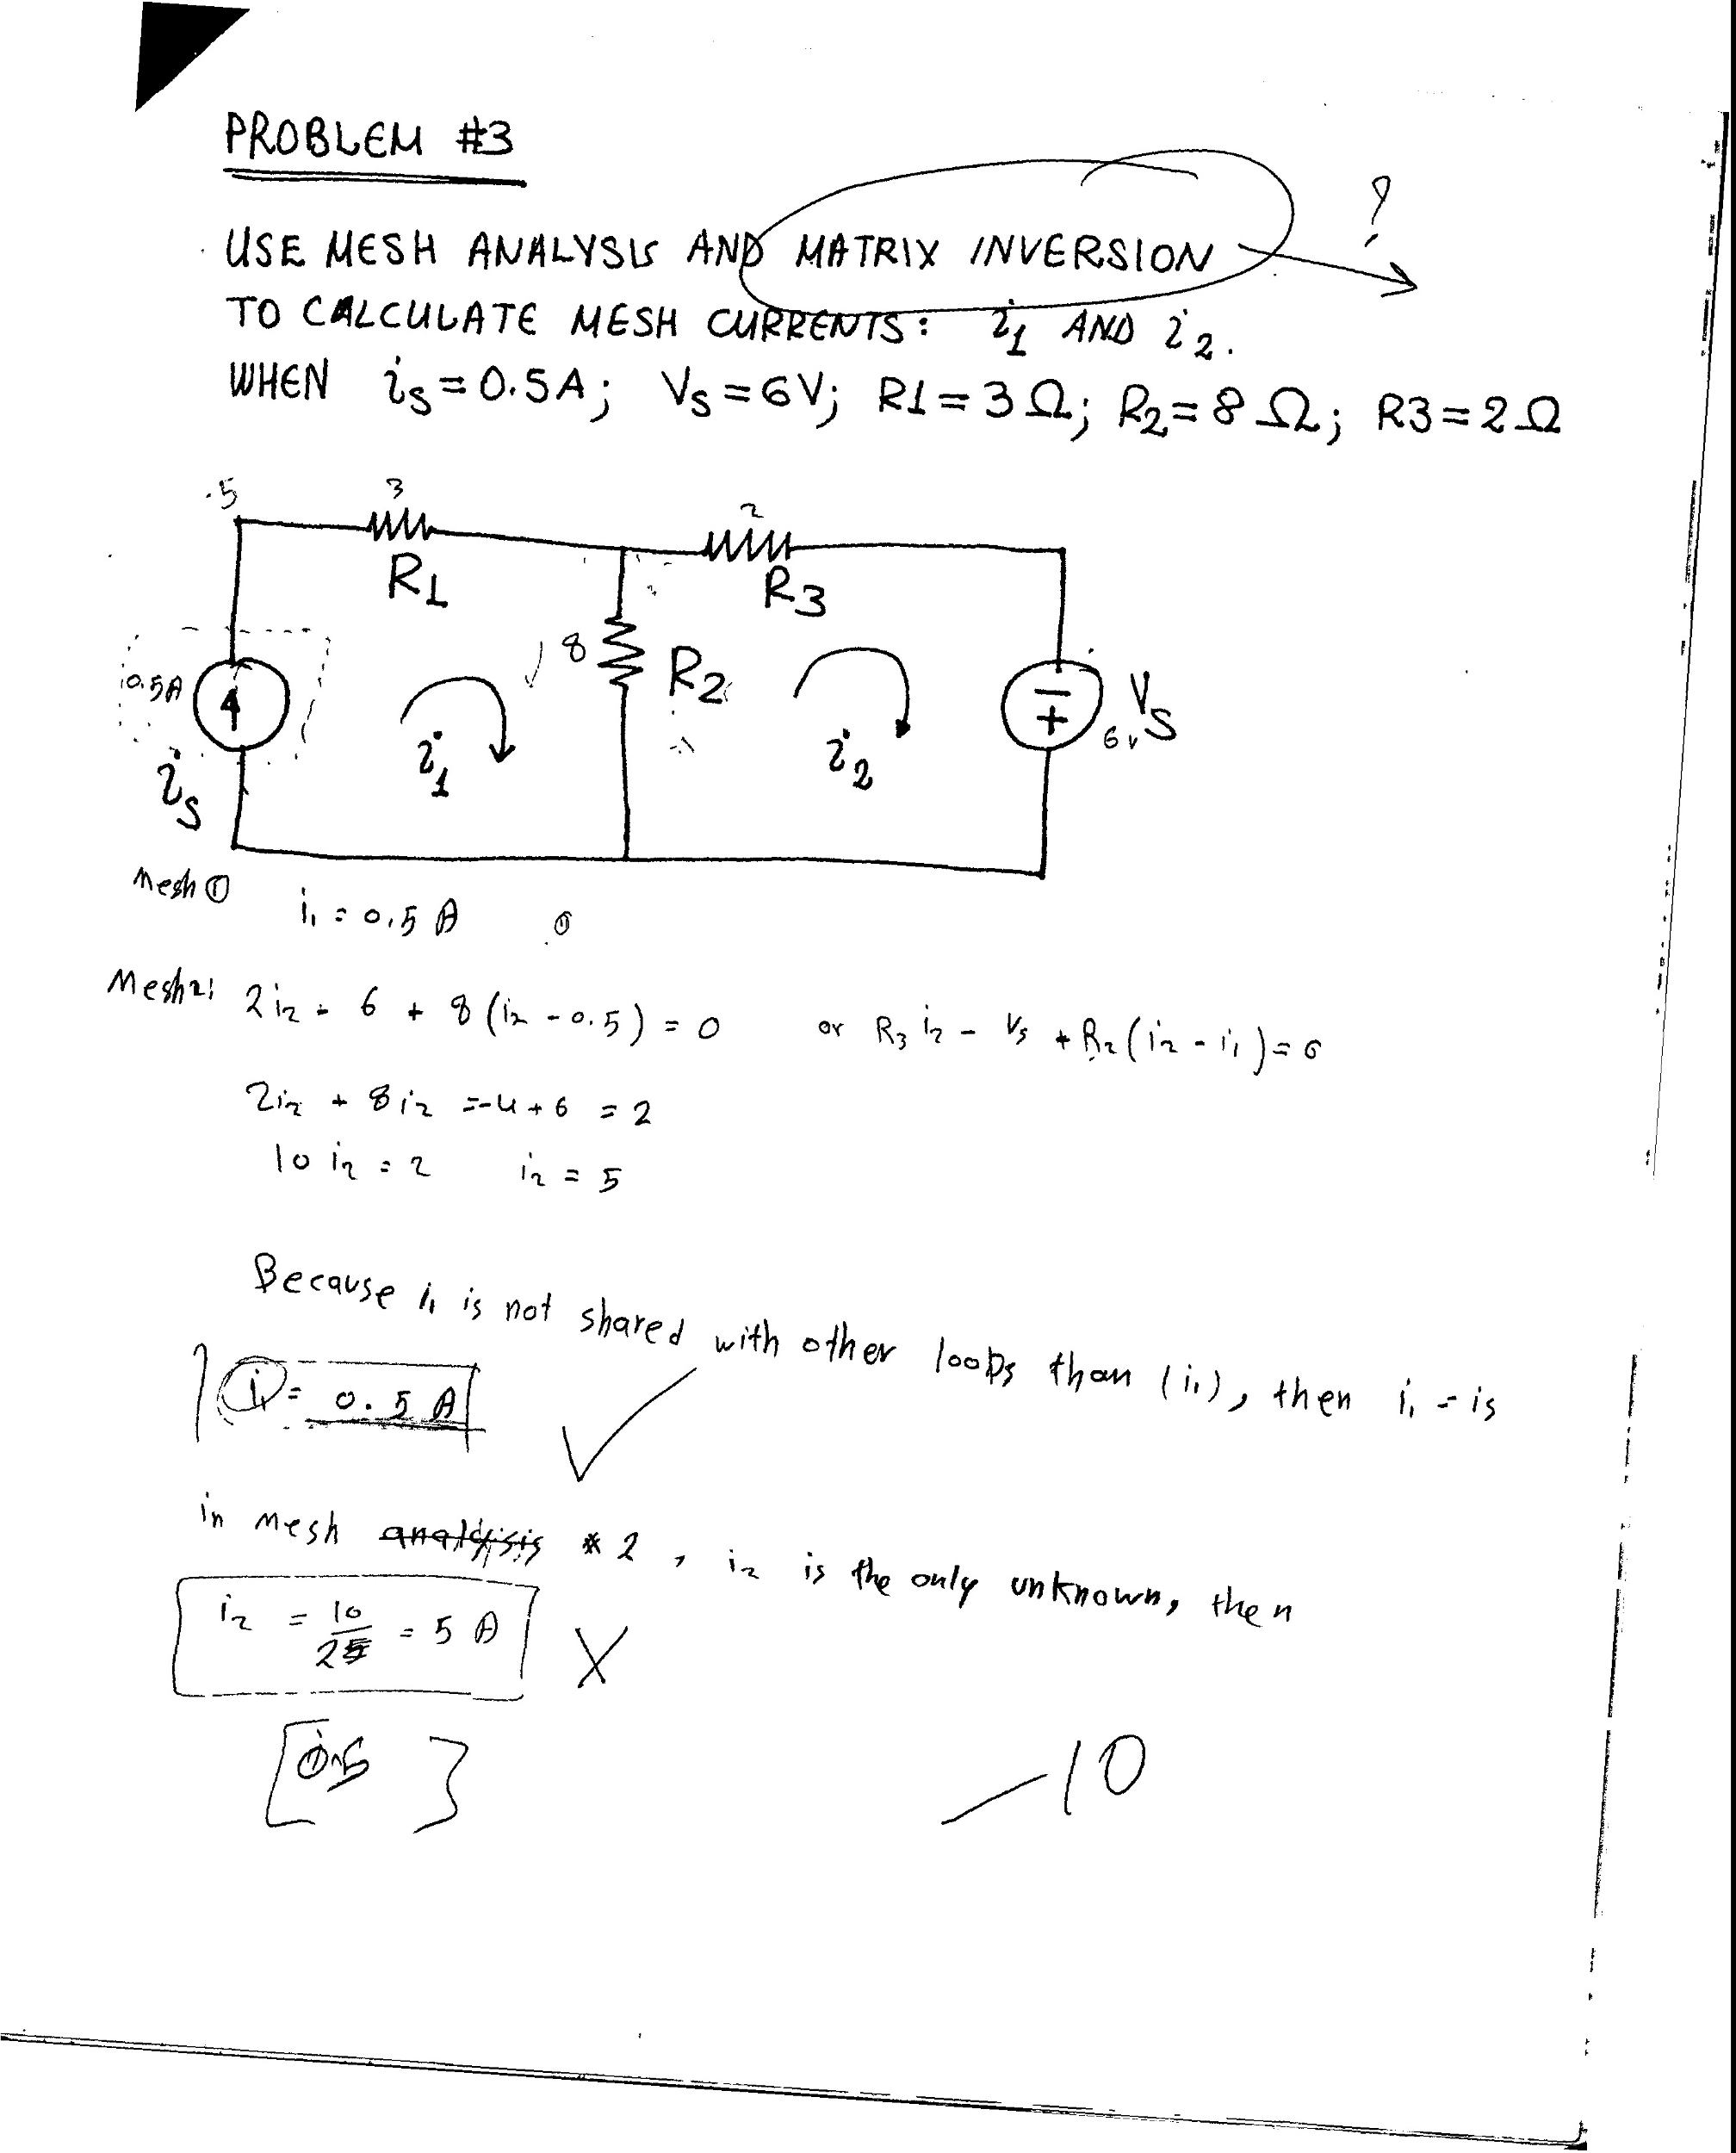 PROBLEM #3
?
USE MESH ANALYSIS AND MATRIX INVERSION
TO CALCULATE MESH CURRENTS: i1 AND i2.
WHEN is = 0.5A; Vs = 6V; R1 = 3 Ω; R2 = 8 Ω; R3 = 2 Ω
.5
3
2
R1
R3
8
R2
0.5A
i1
i2
− +
6v
Vs
is
Mesh ①
i1 = 0.5 A ①
Mesh 2: 2i2 - 6 + 8 (i2 - 0.5) = 0 or R3 i2 - Vs + R2 (i2 - i1) = 0
2i2 + 8i2 = -4 + 6 = 2
10 i2 = 2 i2 = 5
Because i1 is not shared with other loops than (i1), then i1 = is
i1 = 0.5 A
in mesh analysis # 2, i2 is the only unknown, then
i2 = 10/2 = 5 A
X
-10